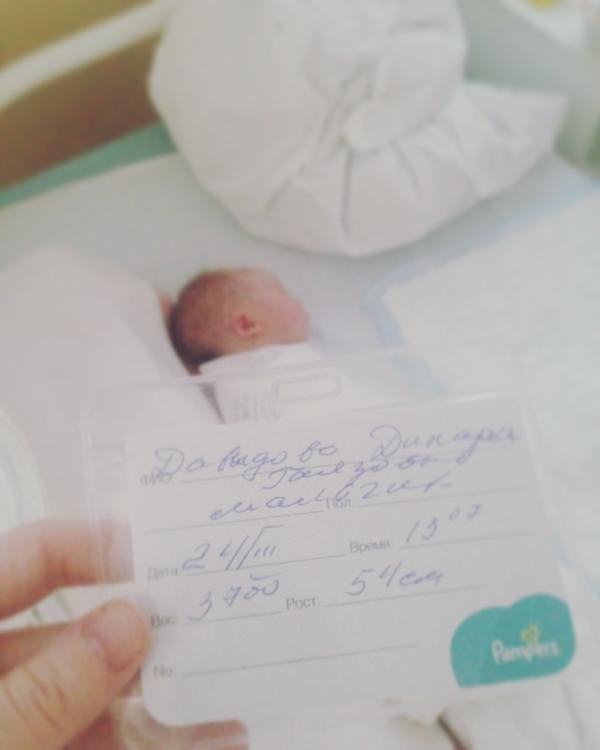 ФИО: Давыдова Динара
Гаязовна
мальчик Пол:
Дата 24/III Время: 13 07
Вес: 3700 Рост: 54 см
No:
Pampers